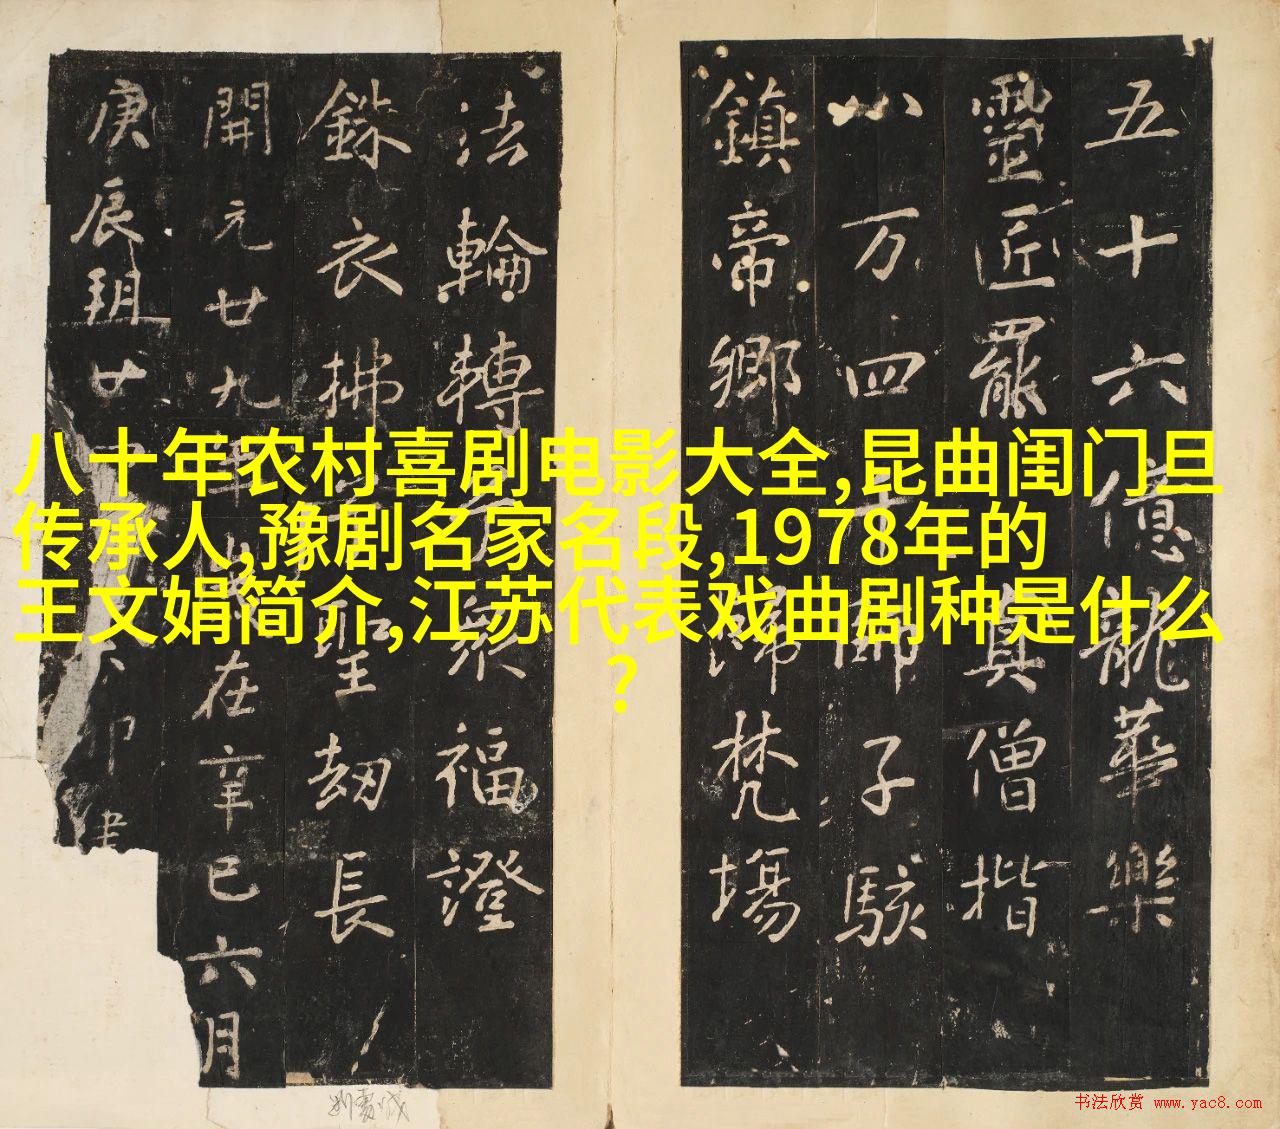 五十六億龍華樂
靈匠罷 真僧揩
八万四千 子駭
鎮帝鄉 歸梵場
法輪轉 眾福證
銖衣拂 聖劫長
開元廿九年 在辛巳六月
庚辰 廿 建
八十年农村喜剧电影大全,昆曲闺门旦
传承人,豫剧名家名段,1978年的
王文娟简介,江苏代表戏曲剧种是什么
?
书法欣赏 www.yac8.com